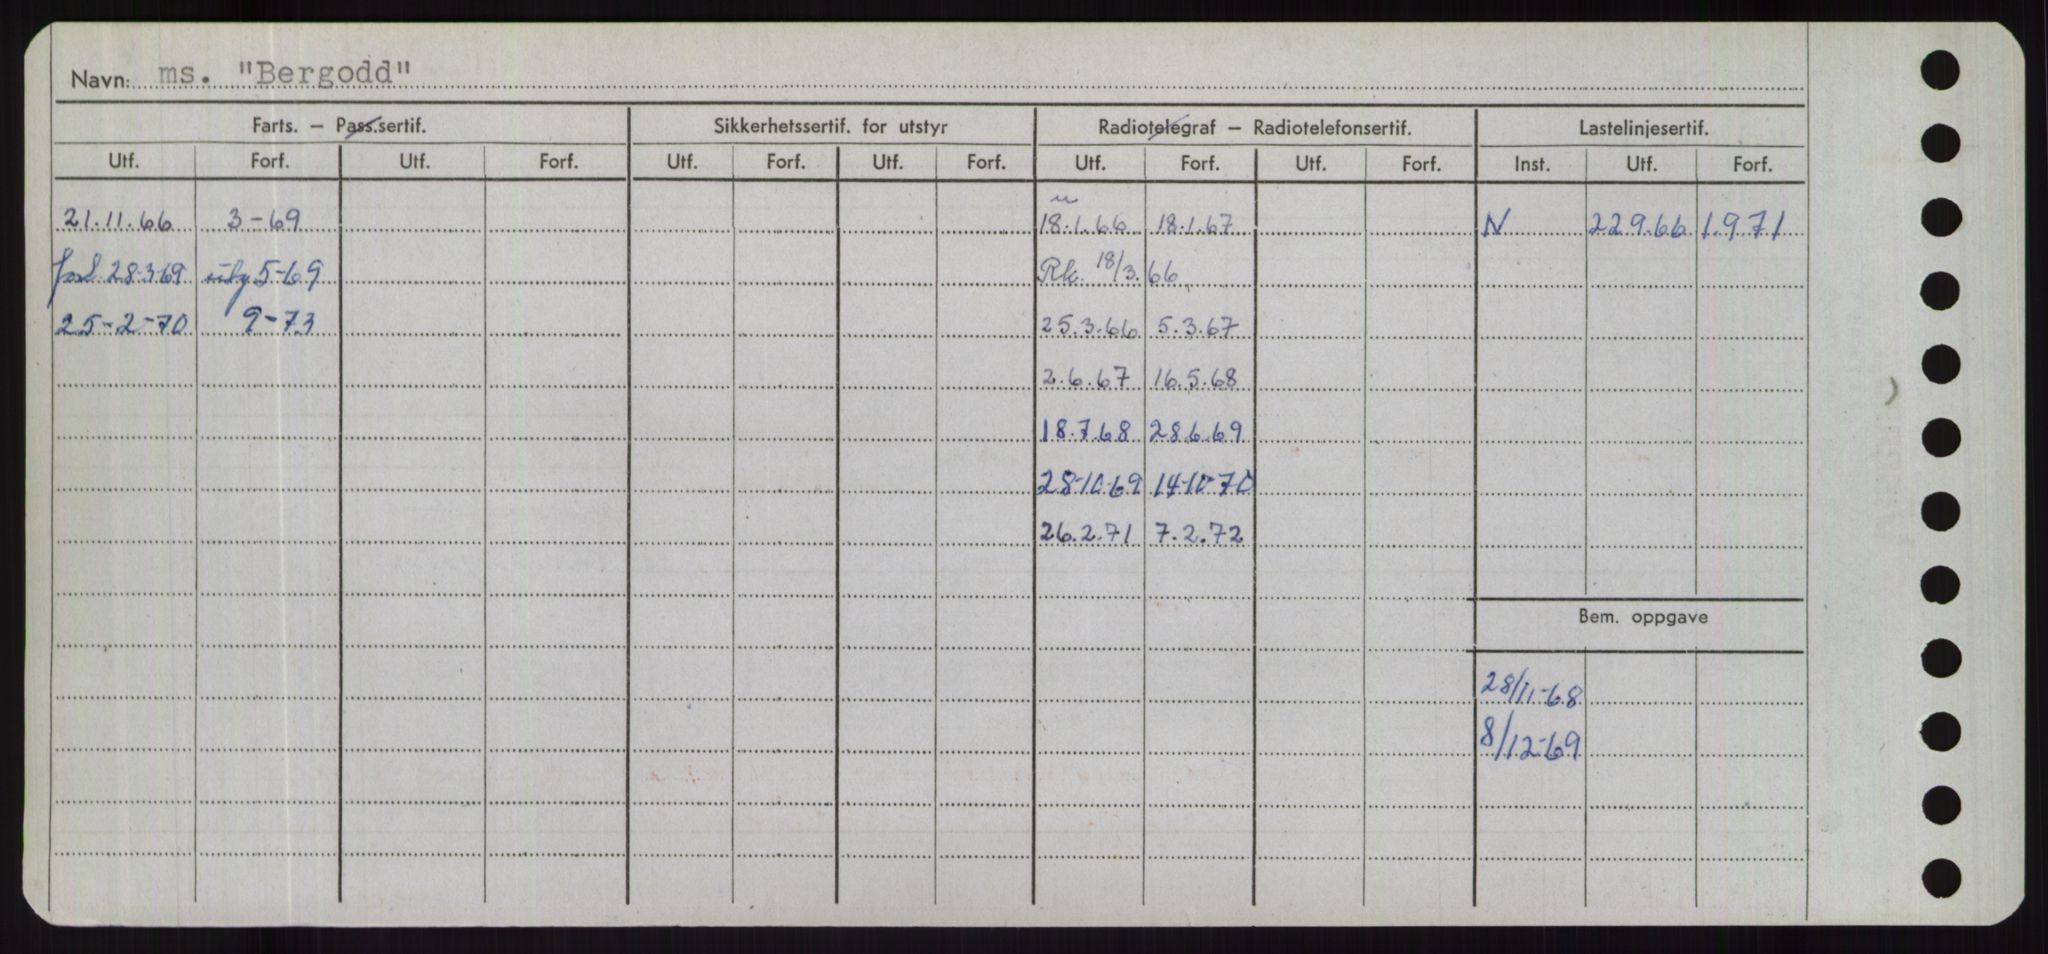 Navn: ms. "Bergodd"
Farts. – Pass.sertif. Sikkerhetssertif. for utstyr Radiotelegraf – Radiotelefonsertif. Lastelinjesertif.
Utf. Forf. Utf. Forf. Utf. Forf. Utf. Forf. Utf. Forf. Utf. Forf. Inst. Utf. Forf.
21.11.66 3-69 18.1.66 18.1.67 N 22.9.66 1.9.71
forl. 28-3-69 5-69 Rk. 18/3.66
25-2-70 9-73 25.3.66 5.3.67
2.6.67 16.5.68
18.7.68 28.6.69
28-10-69 14-10-70
26.2.71 7.2.72
Bem. oppgave
28/11-68
8/12-69